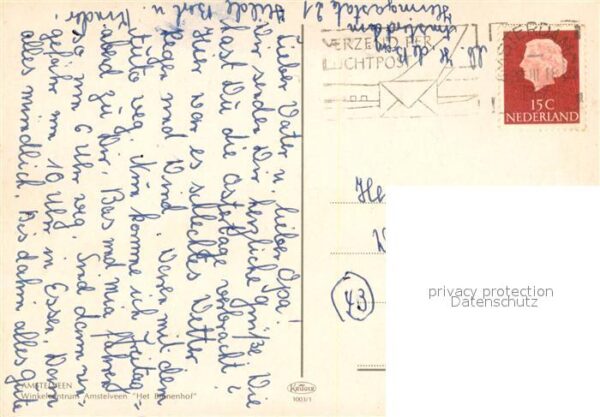 Lieber Vater u. lieber Opa!
Wir senden Dir herzliche Grüße. Wie
hast Du die Ostertage verbracht?
Hier war es schlechtes Wetter
Regen und Wind. Waren mit dem
Auto weg. Nun komme ich Freitag-
abend zu Dir. Bas und Mia fahren
so um 6 Uhr weg. Sind dann un-
gefähr um 10 Uhr in Essen. Dann
alles mündlich. Bis dahin alles gute
Kinder.
VERZEND PER
LUCHTPOST
AMSTERDAM
15 C
NEDERLAND
He
43
privacy protection
Datenschutz
AMSTELVEEN
Winkelcentrum Amstelveen "Het Binnenhof"
1003/1